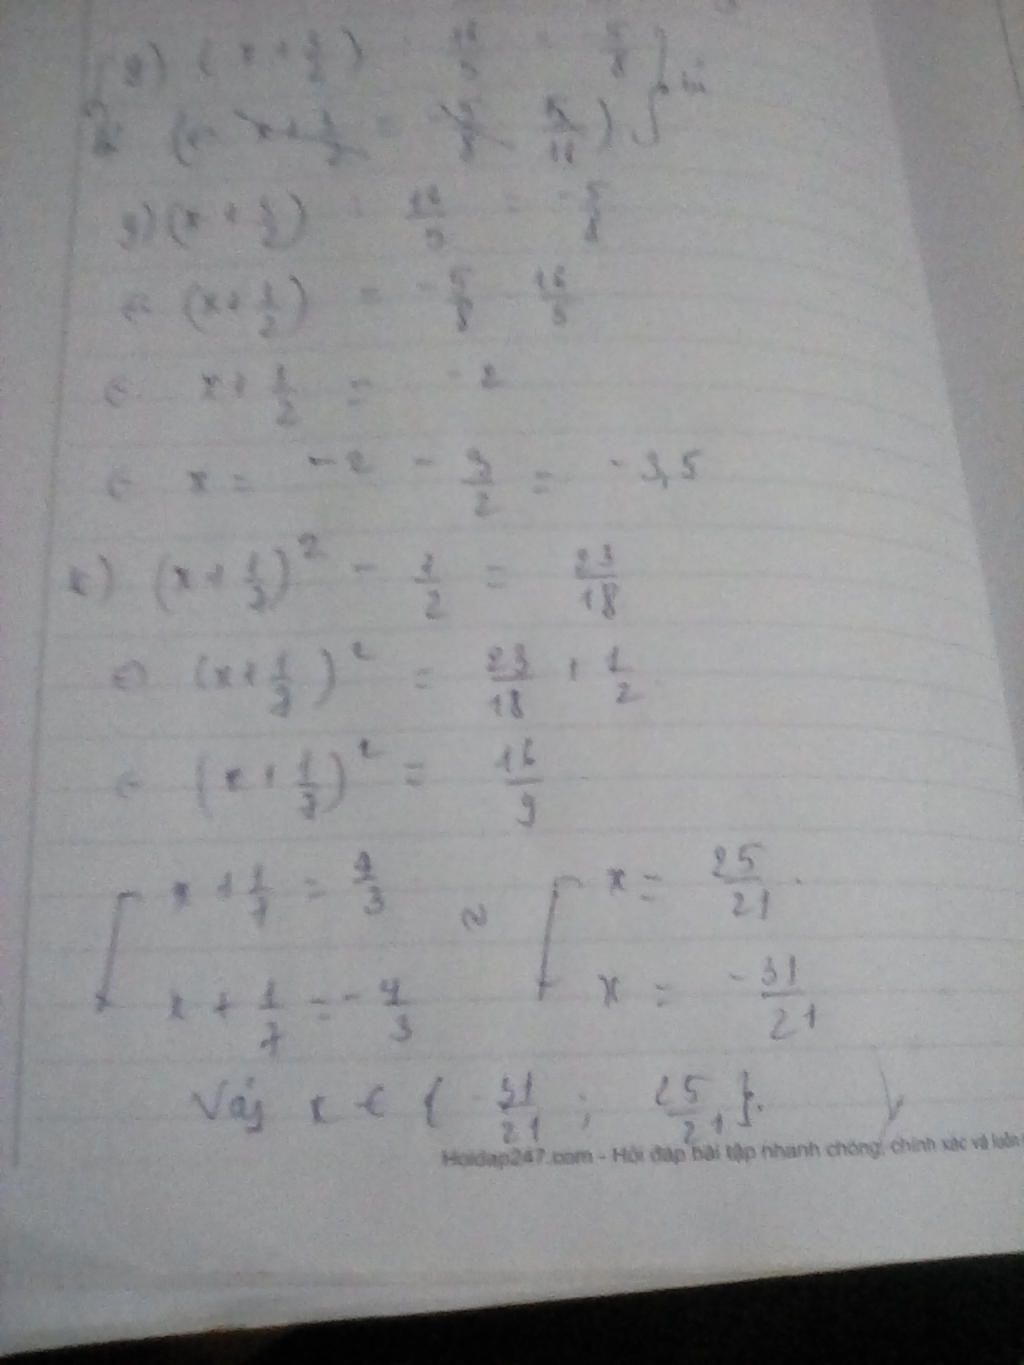 g) (x + 1/2) : 16/5 = -5/8
x + 1/2 = -5/8
g) (x + 1/2) : 16/5 = -5/8
(x + 1/2) = -5/8 . 16/5
x + 1/2 = -2
x = -2 - 3/2 = -3,5
k) (x + 1/7)² - 1/2 = 23/18
⇔ (x + 1/7)² = 23/18 + 1/2
(x + 1/7)² = 16/9
[ x + 1/7 = 4/3 [ x = 25/21
x + 1/7 = -4/3 x = -31/21
Vậy x ∈ { -31/21 ; 25/21 }.
Hoidap247.com - Hỏi đáp bài tập nhanh chóng, chính xác và luôn